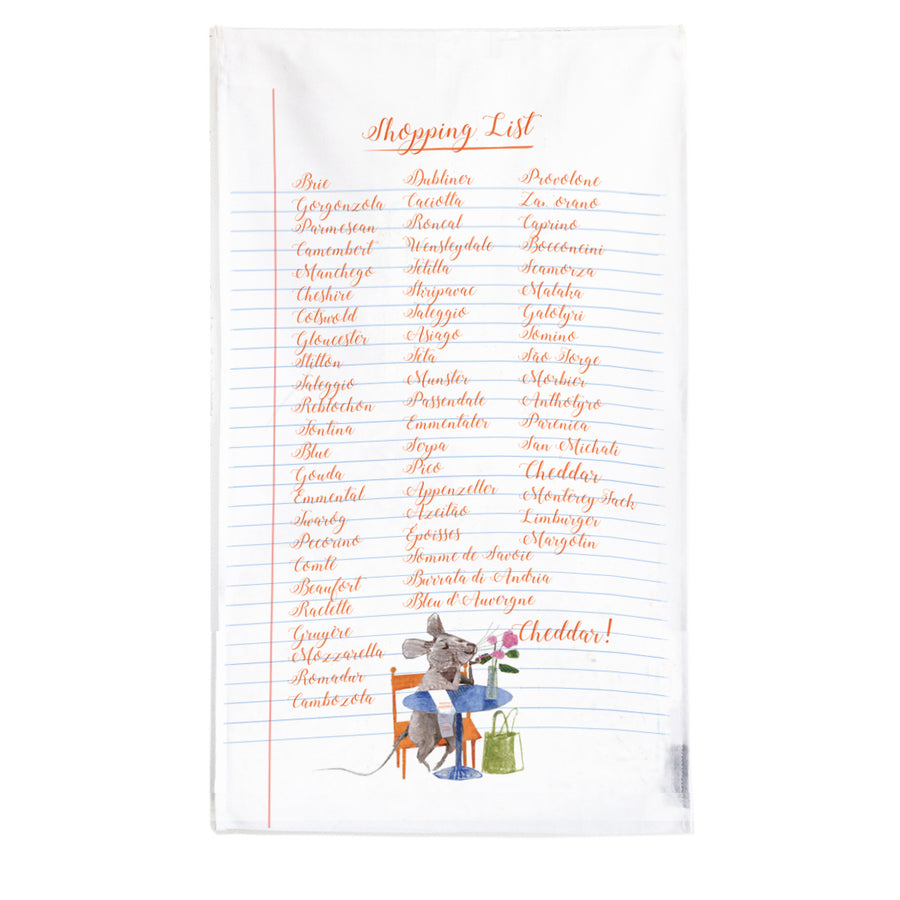 Shopping List
Brie
Gorgonzola
Parmesean
Camembert
Manchego
Cheshire
Cotswold
Gloucester
Stilton
Taleggio
Reblochon
Fontina
Blue
Gouda
Emmental
Twaróg
Pecorino
Comté
Beaufort
Raclette
Gruyère
Mozzarella
Romadur
Cambozola
Dubliner
Caciotta
Roncal
Wensleydale
Tetilla
Skripavac
Taleggio
Asiago
Feta
Munster
Passendale
Emmentaler
Serpa
Pico
Appenzeller
Azeitão
Époisses
Tomme de Savoie
Burrata di Andria
Bleu d'Auvergne
Provolone
Caprino
Bocconcini
Scamorza
Mataka
Galotyri
Tomino
São Jorge
Morbier
Anthotyro
Parenica
San Michali
Cheddar
Monterey Jack
Limburger
Margotin
Cheddar!